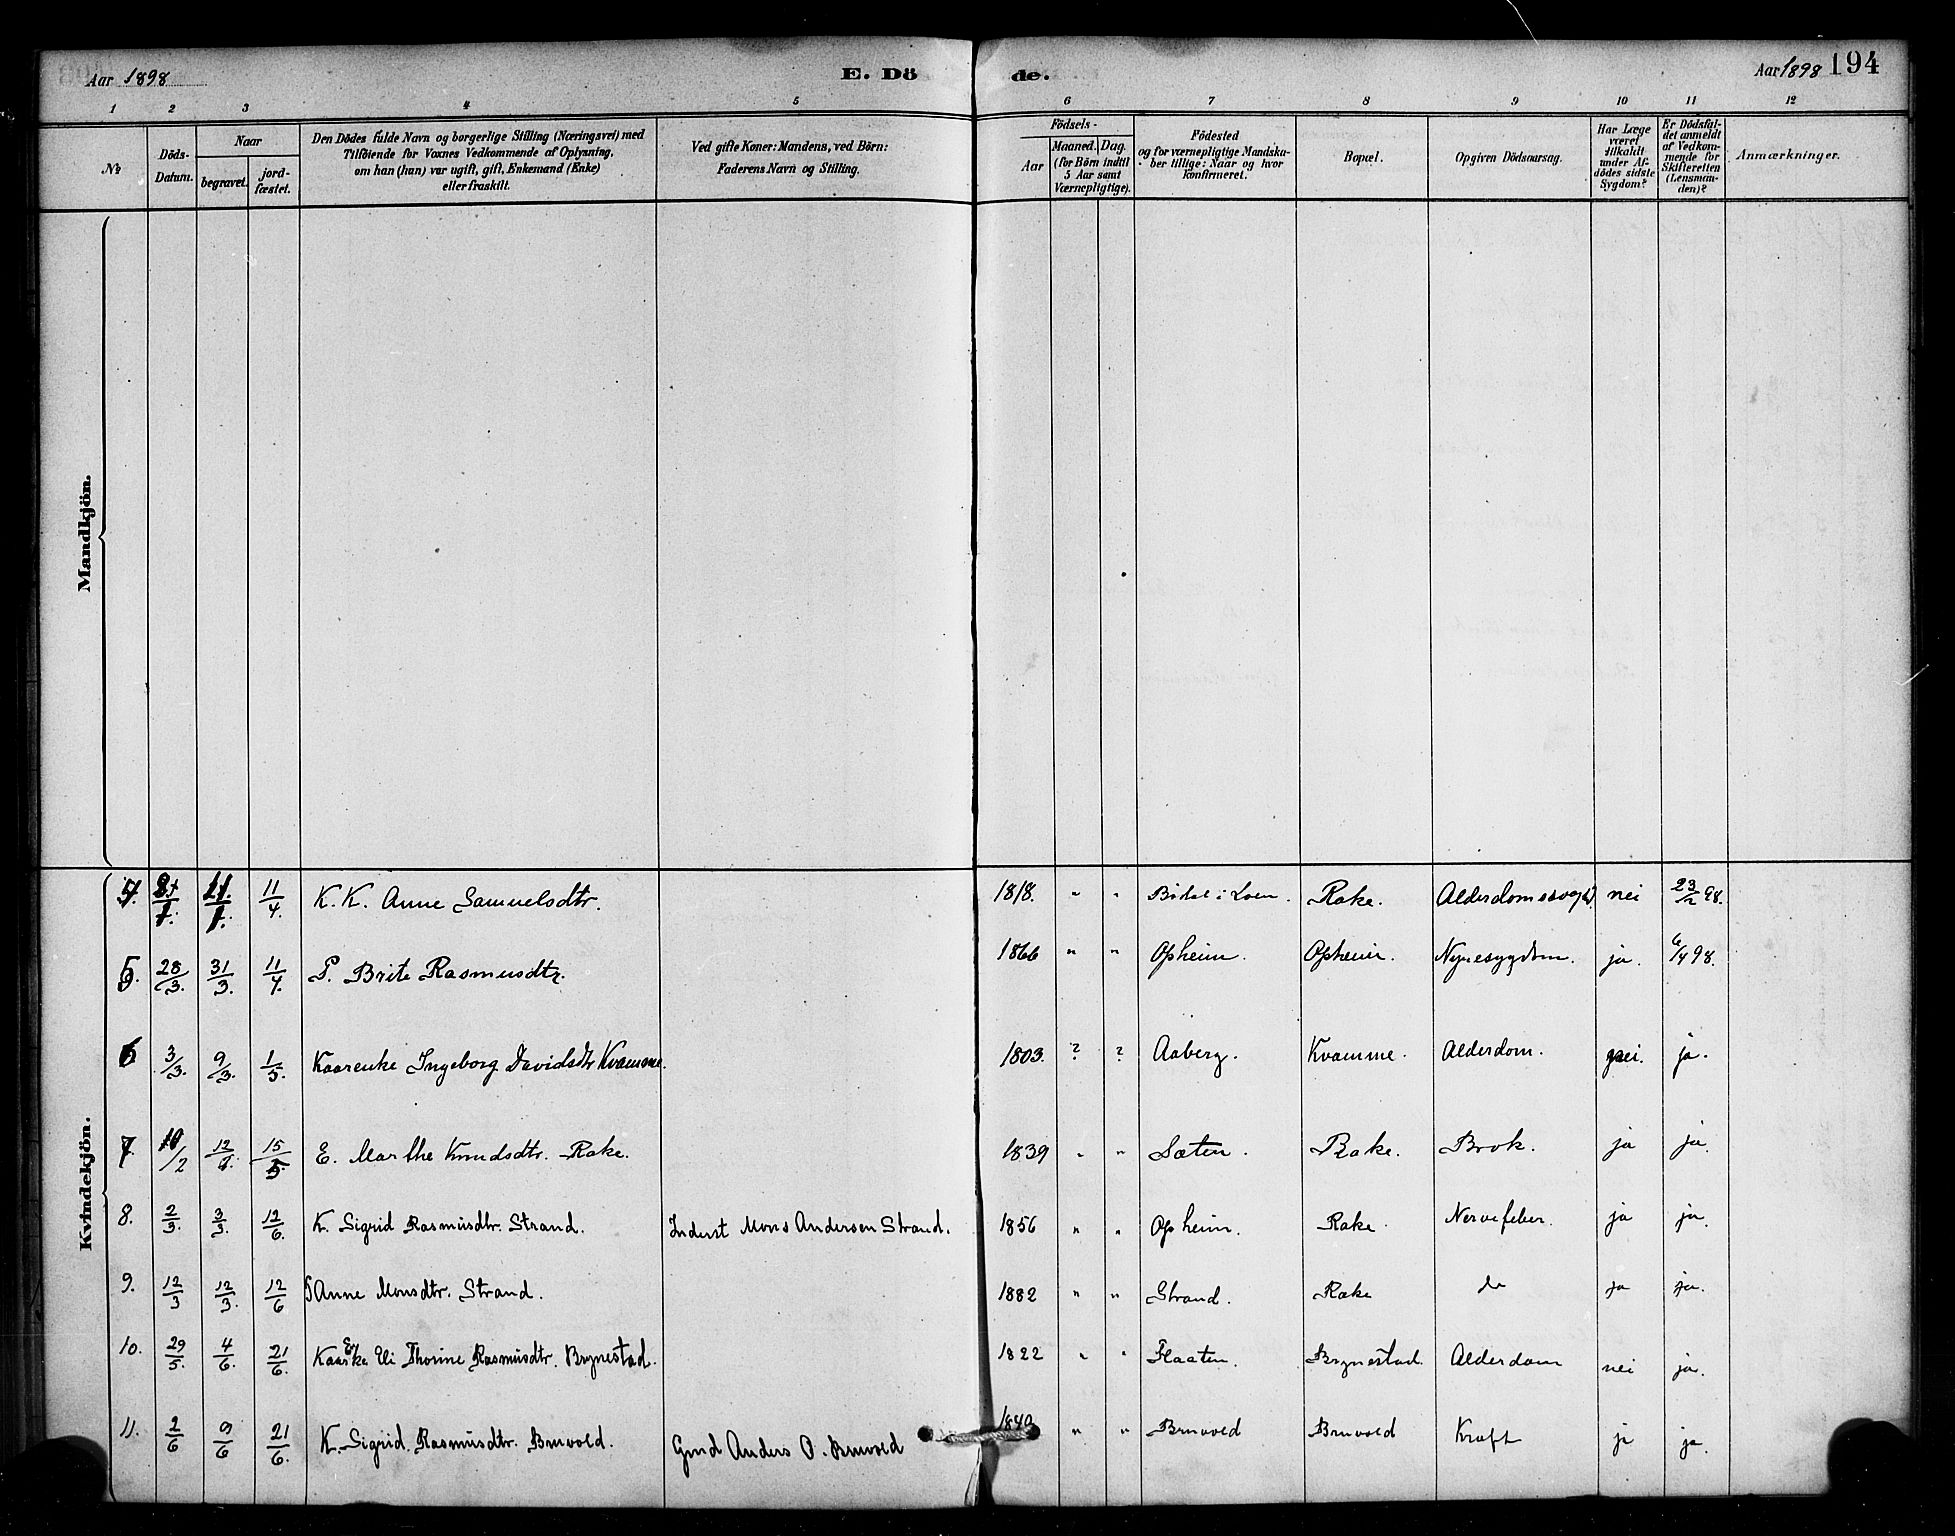 Aar 1898
E. Dö
de.
Aar 1898 194
1 2 3 4 5 6 7 8 9 10 11 12
№
Döds-
Datum.
Naar
begravet.
jord-
fæstet.
Den Dödes fulde Navn og borgerlige Stilling (Næringsvei) med
Tilföiende for Voxnes Vedkommende af Oplysning,
om han (hun) var ugift, gift, Enkemand (Enke)
eller fraskilt.
Ved gifte Koner: Mandens, ved Börn:
Faderens Navn og Stilling.
Födsels-
Aar
Maaned. Dag.
(for Börn indtil
5 Aar samt
Værnepligtige).
Födested
og for værnepligtige Mandska-
ber tillige: Naar og hvor
konfirmeret.
Bopæl.
Opgiven Dödsaarsag.
Har Læge
været
tilkaldt
under Af-
dödes sidste
Sygdom?
Er Dödsfal-
det anmeldt
af Vedkom-
mende for
Skifteretten
(Lensman-
den)?
Anmærkninger.
Mandkjön.
Kvindekjön.
4. 11/4. K.K. Anne Samuelsdtr. 1818. " " Bödal i Loen. Rake. nei 23/2 98.
5. 28/3. 31/3. 11/4. P. Brite Rasmusdtr. 1866 " " Opheim. Opheim. Nyresygdom. ja. 6/4 98.
6 3/3. 9/3. 1/5. Kaarenke Ingeborg Davidsdtr Kvamme. 1803. ? ? Aaberg. Kvamme. Alderdom. nei. ja.
7. 10/2 12/ 15/5 E. Marthe Knudsdtr. Rake. 1839 " " Sæten. Rake. Brok. ja ja.
8. 2/3. 3/3. 12/6. K. Sigrid Rasmusdtr. Strand. Inderst Mons Andersen Strand. 1856 " " Opheim. Rake. Nervefeber. ja ja.
9. 12/3 12/3. 12/6 Anne Monsdtr. Strand. 1882 " " Strand. Rake do ja ja.
10. 29/5. 4/6. 21/6. Eli Thorine Rasmusdtr. Brynestad. 1822 " " Flaaten. Brynestad. Alderdom nei ja.
11. 2/6 9/6 21/6. K. Sigrid Rasmusdtr. Bruvold. Gmd Anders O. Bruvold 1840 " " Bruvold Bruvold Kræft ja ja.